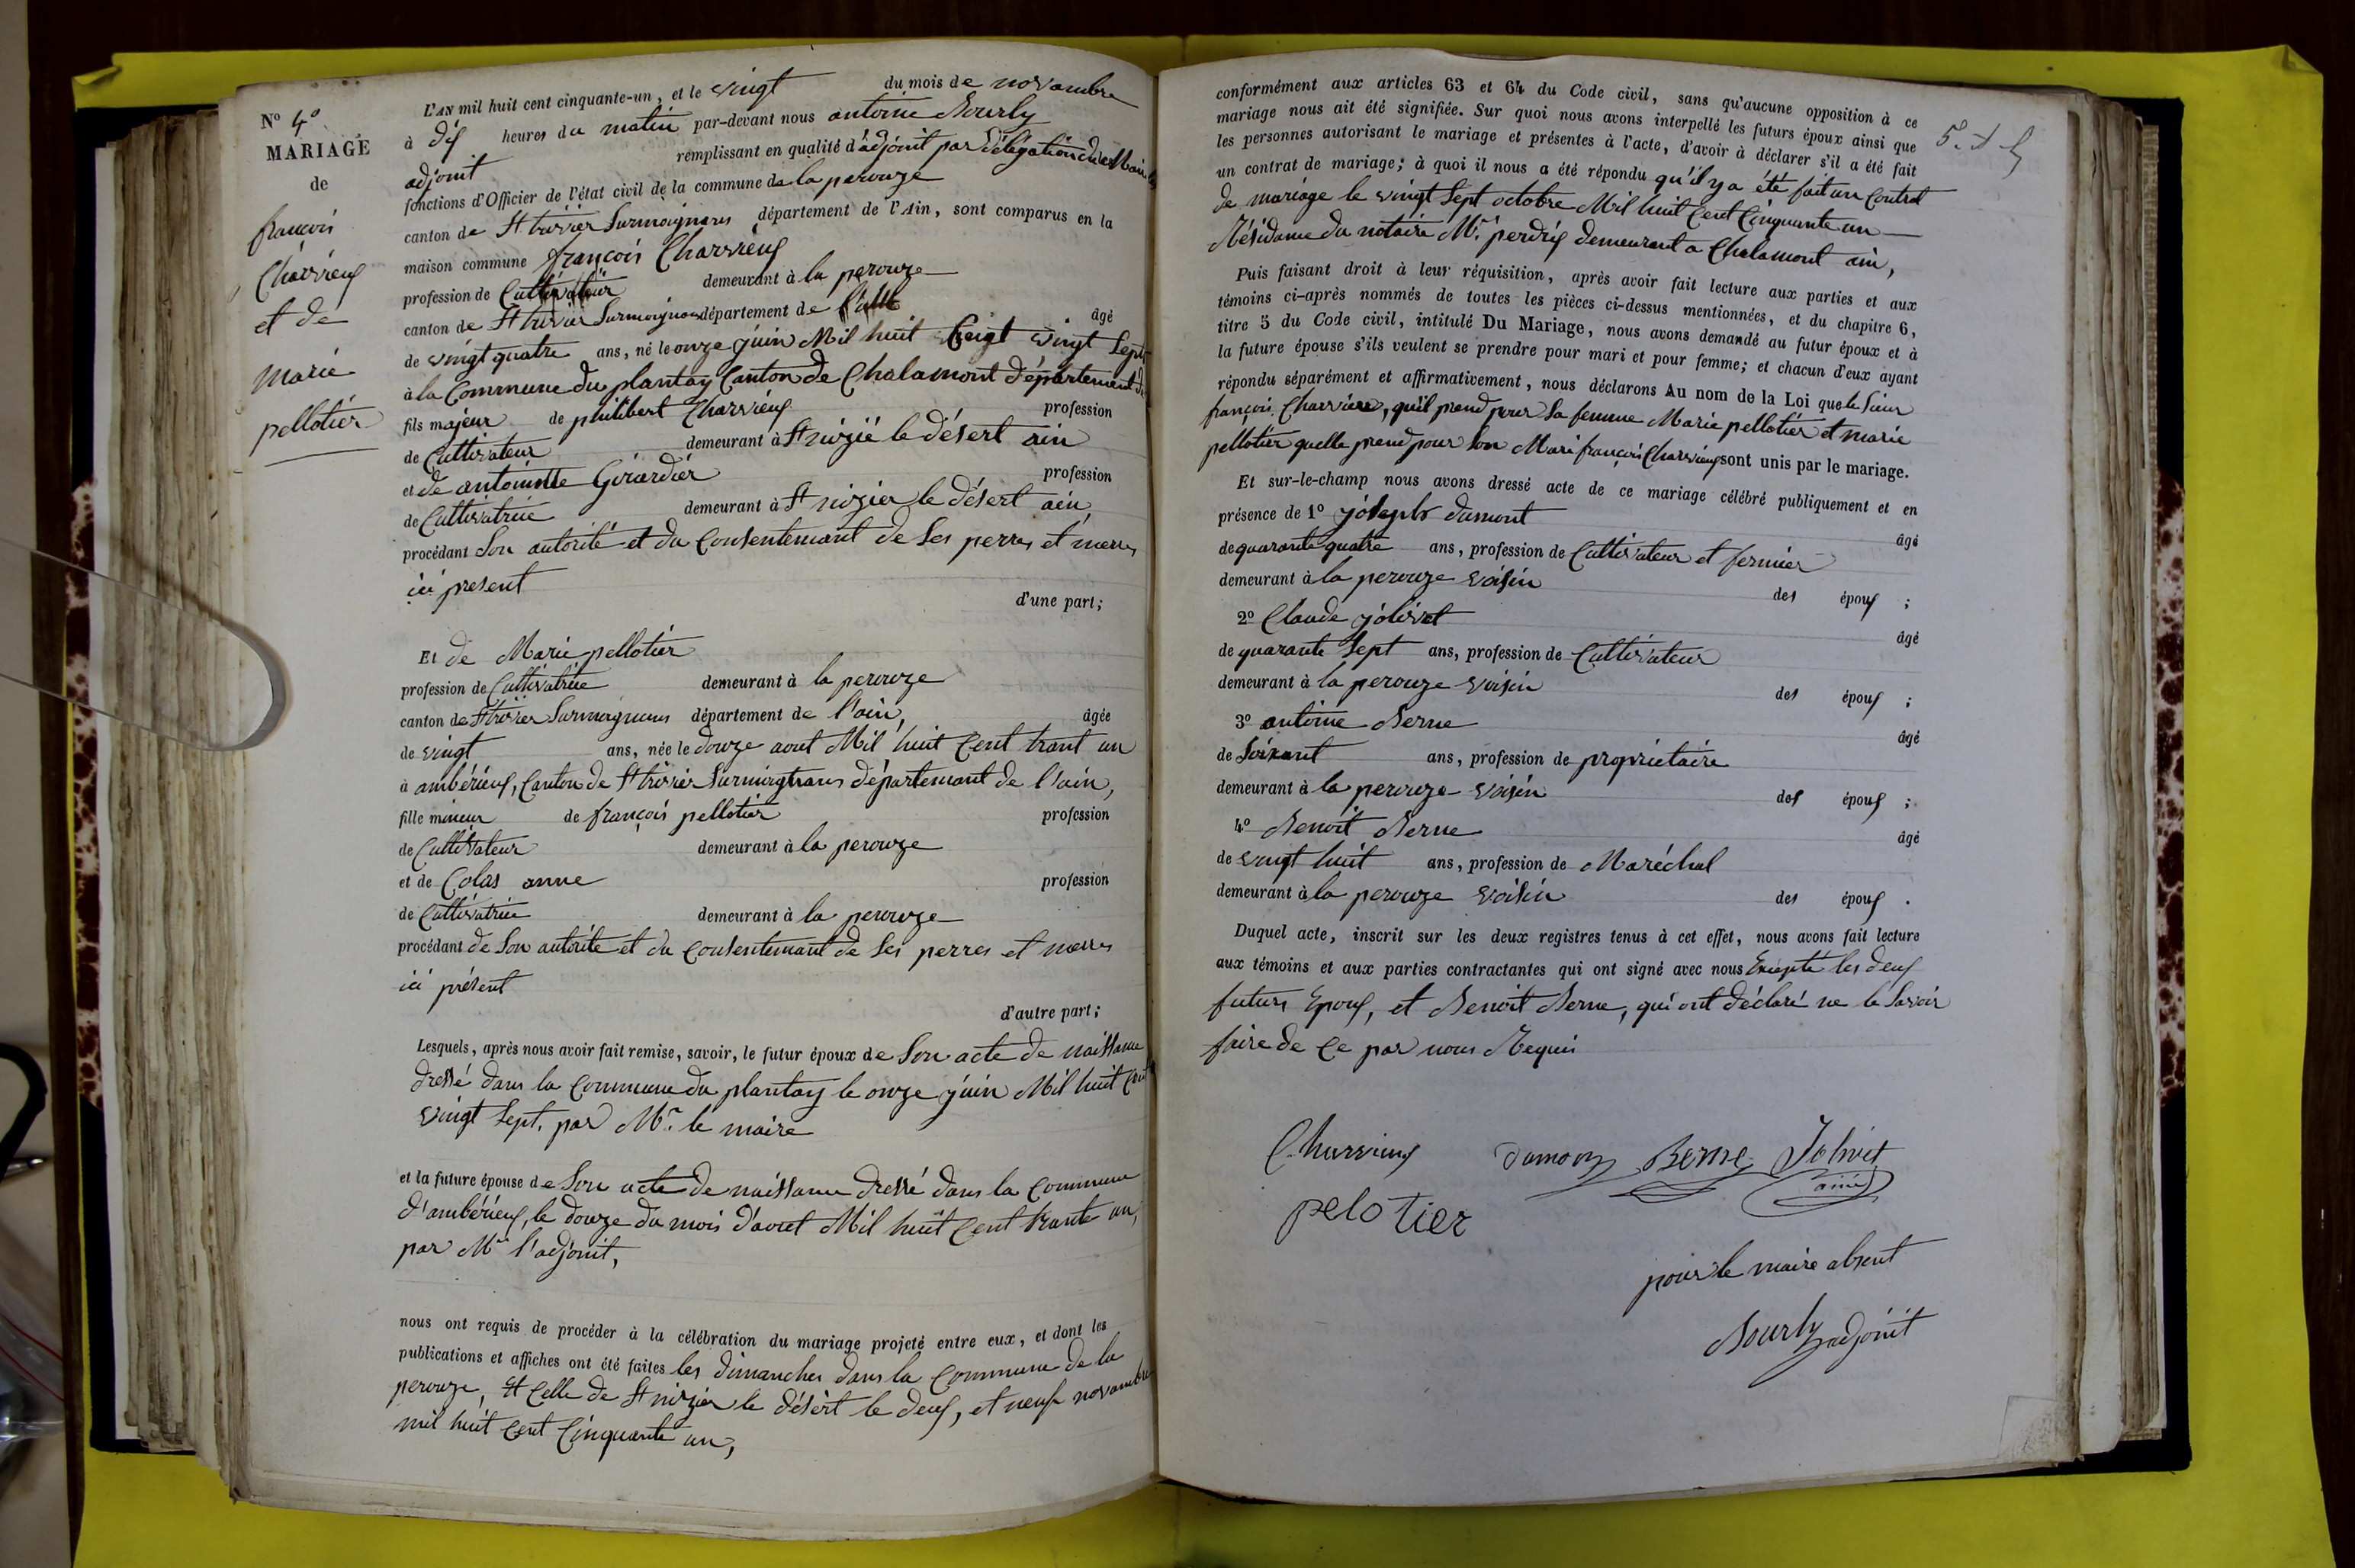 N° 4°
MARIAGE
de
françois
Charvieux
et de
Marie
pellotier
L'AN mil huit cent cinquante-un, et le vingt du mois de novambre
à dix heures du matin par-devant nous antoine Bourly
adjoint remplissant en qualité d'adjoint par délégation du Maire les
fonctions d'Officier de l'état civil de la commune de la perouze
canton de St trivier Surmoignans département de l'Ain, sont comparus en la
maison commune françois Charvieux
profession de Cultivateur demeurant à la perouze
canton de St trivier Surmoignans département de l'ain âgé
de vingt quatre ans, né le onze juin Mil huit Cengt vingt Sept
à la Commune du plantay Canton de Chalamont département de
fils majeur de philibert Charvieux profession
de Cultivateur demeurant à St nizié le désert ain
et de antoinette Girardier profession
de Cultivatrice demeurant à St nizier le désert ain,
procédant Son autorité et du Consentemant de Ses perres et merres
ici present
d'une part;
Et de Marie pellotier
profession de Cultivatrice demeurant à la perouze
canton de St trivier Surmoignans département de l'ain, âgée
de vingt ans, née le douze aout Mil huit Cent trant un
à ambérieux, Canton de St trivier Surmoigtnans départemant de l'ain,
fille mineur de françois pellotier profession
de Cultivateur demeurant à la perouze
et de Colas anne profession
de Cultivatrice demeurant à la perouze
procédant de Son autorité et du Consentemant de Ses perres et merres
ici présent
d'autre part;
Lesquels, après nous avoir fait remise, savoir, le futur époux de Son acte de naissance
dressé dans la Commune du plantay le onze juin Mil huit Cent
vingt Sept, par Mr. le maire
et la future épouse de Son acte de naissance dressé dans la Commune
d'ambérieux, le douze du mois d'aout Mil huit Cent trante un,
par Mr l'adjoint,
nous ont requis de procéder à la célébration du mariage projeté entre eux, et dont les
publications et affiches ont été faites les dimanches dans la Commune de la
perouze, et Celle de St nizier le désert le deux, et neuf novambre
mil huit Cent Cinquante un,
conformément aux articles 63 et 64 du Code civil, sans qu'aucune opposition à ce
mariage nous ait été signifiée. Sur quoi nous avons interpellé les futurs époux ainsi que
les personnes autorisant le mariage et présentes à l'acte, d'avoir à déclarer s'il a été fait
un contrat de mariage; à quoi il nous a été répondu qu'il y a été fait un Contrat
de mariage le vingt Sept octobre Mil huit Cent Cinquante un
Résidance du notaire Mr. perdrix demeurant a Chalamont ain,
Puis faisant droit à leur réquisition, après avoir fait lecture aux parties et aux
témoins ci-après nommés de toutes les pièces ci-dessus mentionnées, et du chapitre 6,
titre 5 du Code civil, intitulé Du Mariage, nous avons demandé au futur époux et à
la future épouse s'ils veulent se prendre pour mari et pour femme; et chacun d'eux ayant
répondu séparément et affirmativement, nous déclarons Au nom de la Loi que le Sieur
françois Charvieux, qu'il prend pour Sa femme Marie pellotier et marie
pellotier quelle prend pour Son Mari françois Charvieux sont unis par le mariage.
Et sur-le-champ nous avons dressé acte de ce mariage célébré publiquement et en
présence de 1° joseph dumont âgé
de quarante quatre ans, profession de Cultivateur et fermier
demeurant à la perouze voisin des époux ;
2° Claude jolivet âgé
de quarante Sept ans, profession de Cultivateur
demeurant à la perouze voisin des époux ;
3° antoine Berne âgé
de Soixant ans, profession de propriétaire
demeurant à la perouze voisin des époux ;
4° Benoit Berne âgé
de vingt huit ans, profession de Maréchal
demeurant à la perouze voisin des époux .
Duquel acte, inscrit sur les deux registres tenus à cet effet, nous avons fait lecture
aux témoins et aux parties contractantes qui ont signé avec nous Excepté les deux
futurs Epoux, et Benoit Berne, qui ont déclaré ne le Savoir
faire de Ce par nous Requis
Charvieux dumont Berne Jolivet
ainé
peloTier
pour le maire absent
Bourly adjoint